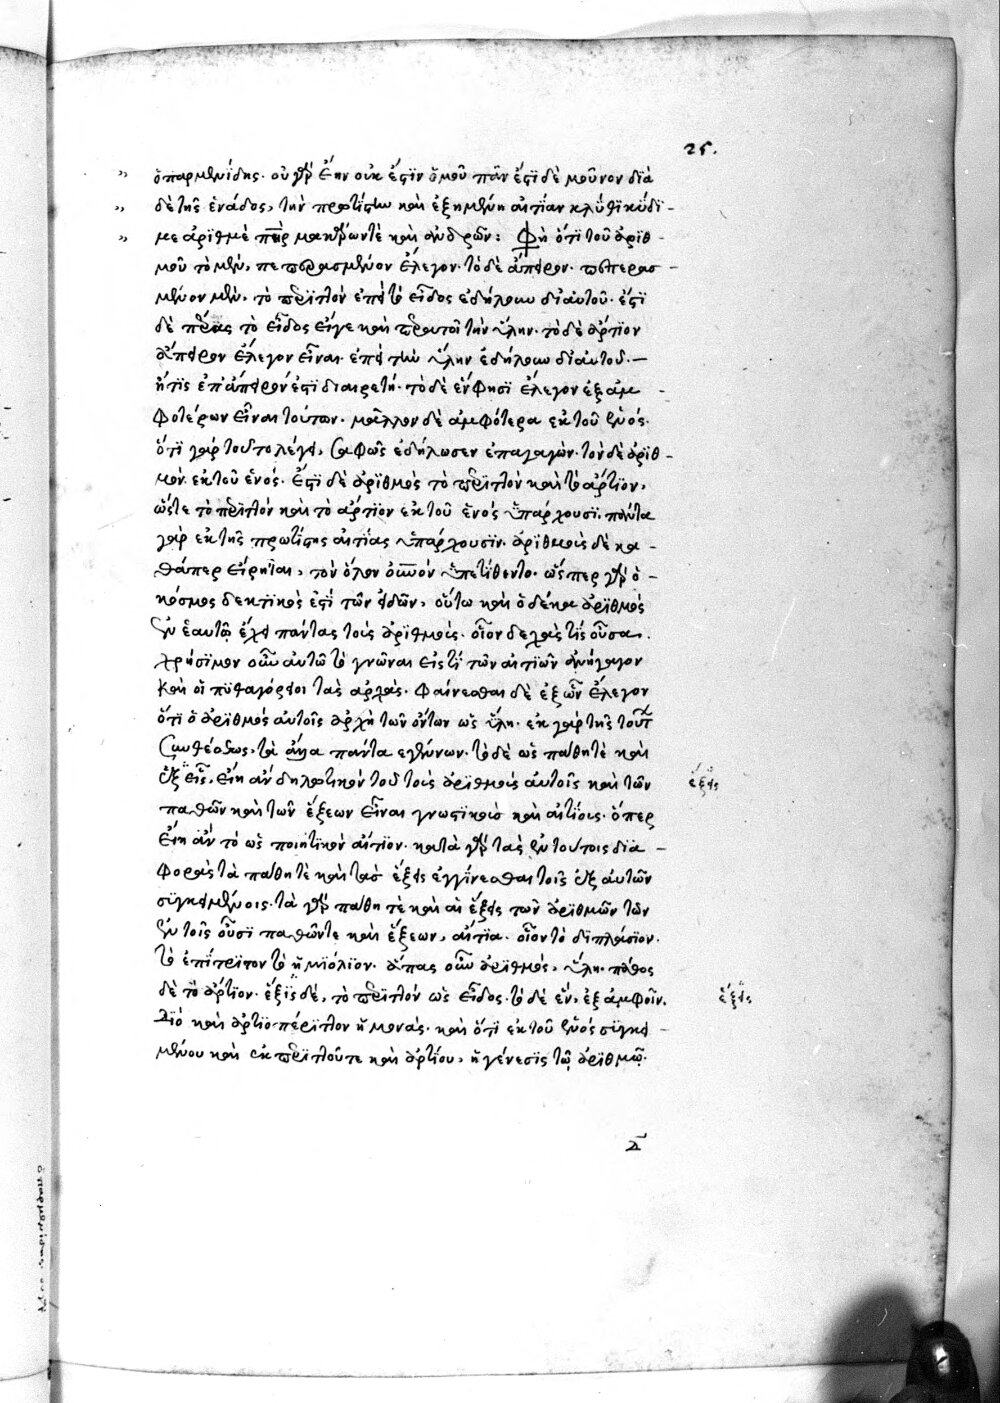 25.
ὁ παρμενίδης. οὐ γὰρ ἔην οὐκ ἔστιν ὁμοῦ πᾶν ἔστι δὲ μοῦνον διὰ
δὲ τῆς ἑνάδος, τὴν πρωτίστην καὶ ἐξῃρημένην αἰτίαν κλῦθι κύδι-
με ἀριθμὲ πάτερ μακάρων τὲ καὶ ἀνδρῶν: Φησὶ ὅτι τοῦ ἀριθ-
μοῦ τὸ μὲν, πεπερασμένον ἔλεγον. τὸ δὲ ἄπειρον. πεπερασ-
μένον μὲν, τὸ περιττὸν ἐπεὶ τὸ εἶδος ἐδήλουν δι' αὐτοῦ. ἔστι
δὲ πέρας τὸ εἶδος εἴγε καὶ περατοῖ τὴν ὕλην. τὸ δὲ ἄρτιον
ἄπειρον ἔλεγον εἶναι. ἐπεὶ τὴν ὕλην ἐδήλουν δι' αὐτοῦ.—
ἥτις ἐπ' ἄπειρόν ἐστι διαιρετή. τὸ δὲ ἓν φησὶ ἔλεγον ἐξ ἀμ-
φοτέρων εἶναι τούτων. μᾶλλον δὲ ἀμφότερα ἐκ τοῦ ἑνός.
ὅτι γὰρ τοῦτο λέγει, σαφῶς ἐδήλωσεν ἐπαγαγών. τὸν δὲ ἀριθ-
μὸν ἐκ τοῦ ἑνός. ἔστι δὲ ἀριθμὸς τὸ περιττὸν καὶ τὸ ἄρτιον,
ὥστε τὸ περιττὸν καὶ τὸ ἄρτιον ἐκ τοῦ ἑνός ὑπάρχουσι. πάντα
γὰρ ἐκ τῆς πρωτίστης αἰτίας ὑπάρχουσιν. ἀριθμοὺς δὲ κα-
θάπερ εἴρηται, τὸν ὅλον οὐρανὸν ὑπετίθεντο. ὥσπερ γὰρ ὁ
κόσμος δεκτικός ἐστὶ τῶν εἰδῶν, οὕτω καὶ ὁ δέκα ἀριθμὸς
ἐν ἑαυτῷ ἔχει πάντας τοὺς ἀριθμούς. οἷον δεχάς τις οὖσα.
χρήσιμον οὖν αὐτῷ τὸ γνῶναι εἰς τί τῶν αἰτιῶν ἀνήγαγον
καὶ οἱ πυθαγόρειοι τὰς ἀρχάς. φαίνεσθαι δὲ ἐξ ὧν ἔλεγον
ὅτι ὁ ἀριθμὸς αὐτοῖς ἀρχὴ τῶν ὄντων ὡς ὕλη. ἐκ γὰρ τῆς τούτου
συνθέσεως, τὰ ἄλλα πάντα ἐγέννων. τὸ δὲ ὡς πάθη τὲ καὶ
ἕξεις, εἴη ἂν δηλωτικὸν τοῦ τοὺς ἀριθμοὺς αὐτοῖς καὶ τῶν ἕξεις
παθῶν καὶ τῶν ἕξεων εἶναι γνωστικοὺς καὶ αἰτίους. ὅπερ
εἴη ἂν τὸ ὡς ποιητικὸν αἴτιον. κατὰ γὰρ τὰς ἐν τούτοις δια-
φορὰς τὰ πάθη τὲ καὶ τὰς ἕξεις ἐγγίνεσθαι τοῖς ἐξ αὐτῶν
συγκειμένοις. τὰ γὰρ πάθη τὲ καὶ αἱ ἕξεις τῶν ἀριθμῶν τῶν
ἐν τοῖς οὖσι παθῶν τε καὶ ἕξεων, αἴτια. οἷον τὸ διπλάσιον.
τὸ ἐπίτριτον τὸ ἡμιόλιον. ἅπας οὖν ἀριθμὸς, ὕλη. πάθος
δὲ τὸ ἄρτιον. ἕξις δὲ, τὸ περιττὸν ὡς εἶδος. τὸ δὲ ἓν, ἐξ ἀμφοῖν. ἕξεις
διὸ καὶ ἀρτιοπέριττον ἡ μονάς. καὶ ὅτι ἐκ τοῦ ἑνὸς συγκει-
μένου καὶ ἐκ περιττοῦ τε καὶ ἀρτίου, ἡ γένεσις τῷ ἀριθμῷ.